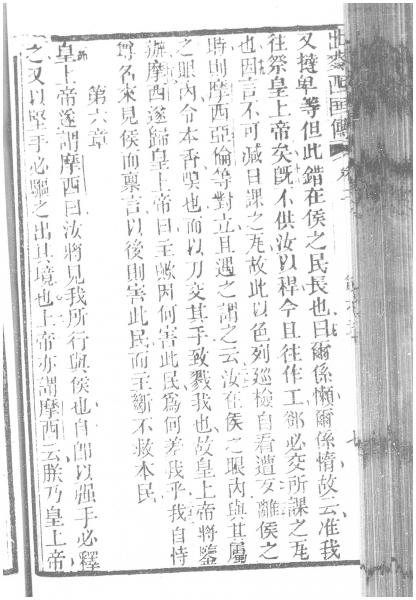 出麥西國傳
又撻阜等但此錯在侯之民長也曰爾係懶爾係惰故云准我
往祭皇上帝矣旣不供汝以稈今且往作工鄉必交所課之瓦
也因言不可減日課之瓦故此以色列巡檢自看遭災離侯之
時則摩西亞倫等對立且遇之謂之云汝在侯之眼內與其屬
之眼內令本香臭也而以刀交其手致戮我也故皇上帝將鑒
辦摩西遂歸皇上帝曰主歟因何害此民爲何差我乎我自恃
尊名來見侯而稟言以後則害此民而主斷不救本民
第六章
皇上帝遂謂摩西曰汝將見我所行與侯也自卽以强手必釋
之又以堅手必驅之出其境也上帝亦謂摩西云朕乃皇上帝